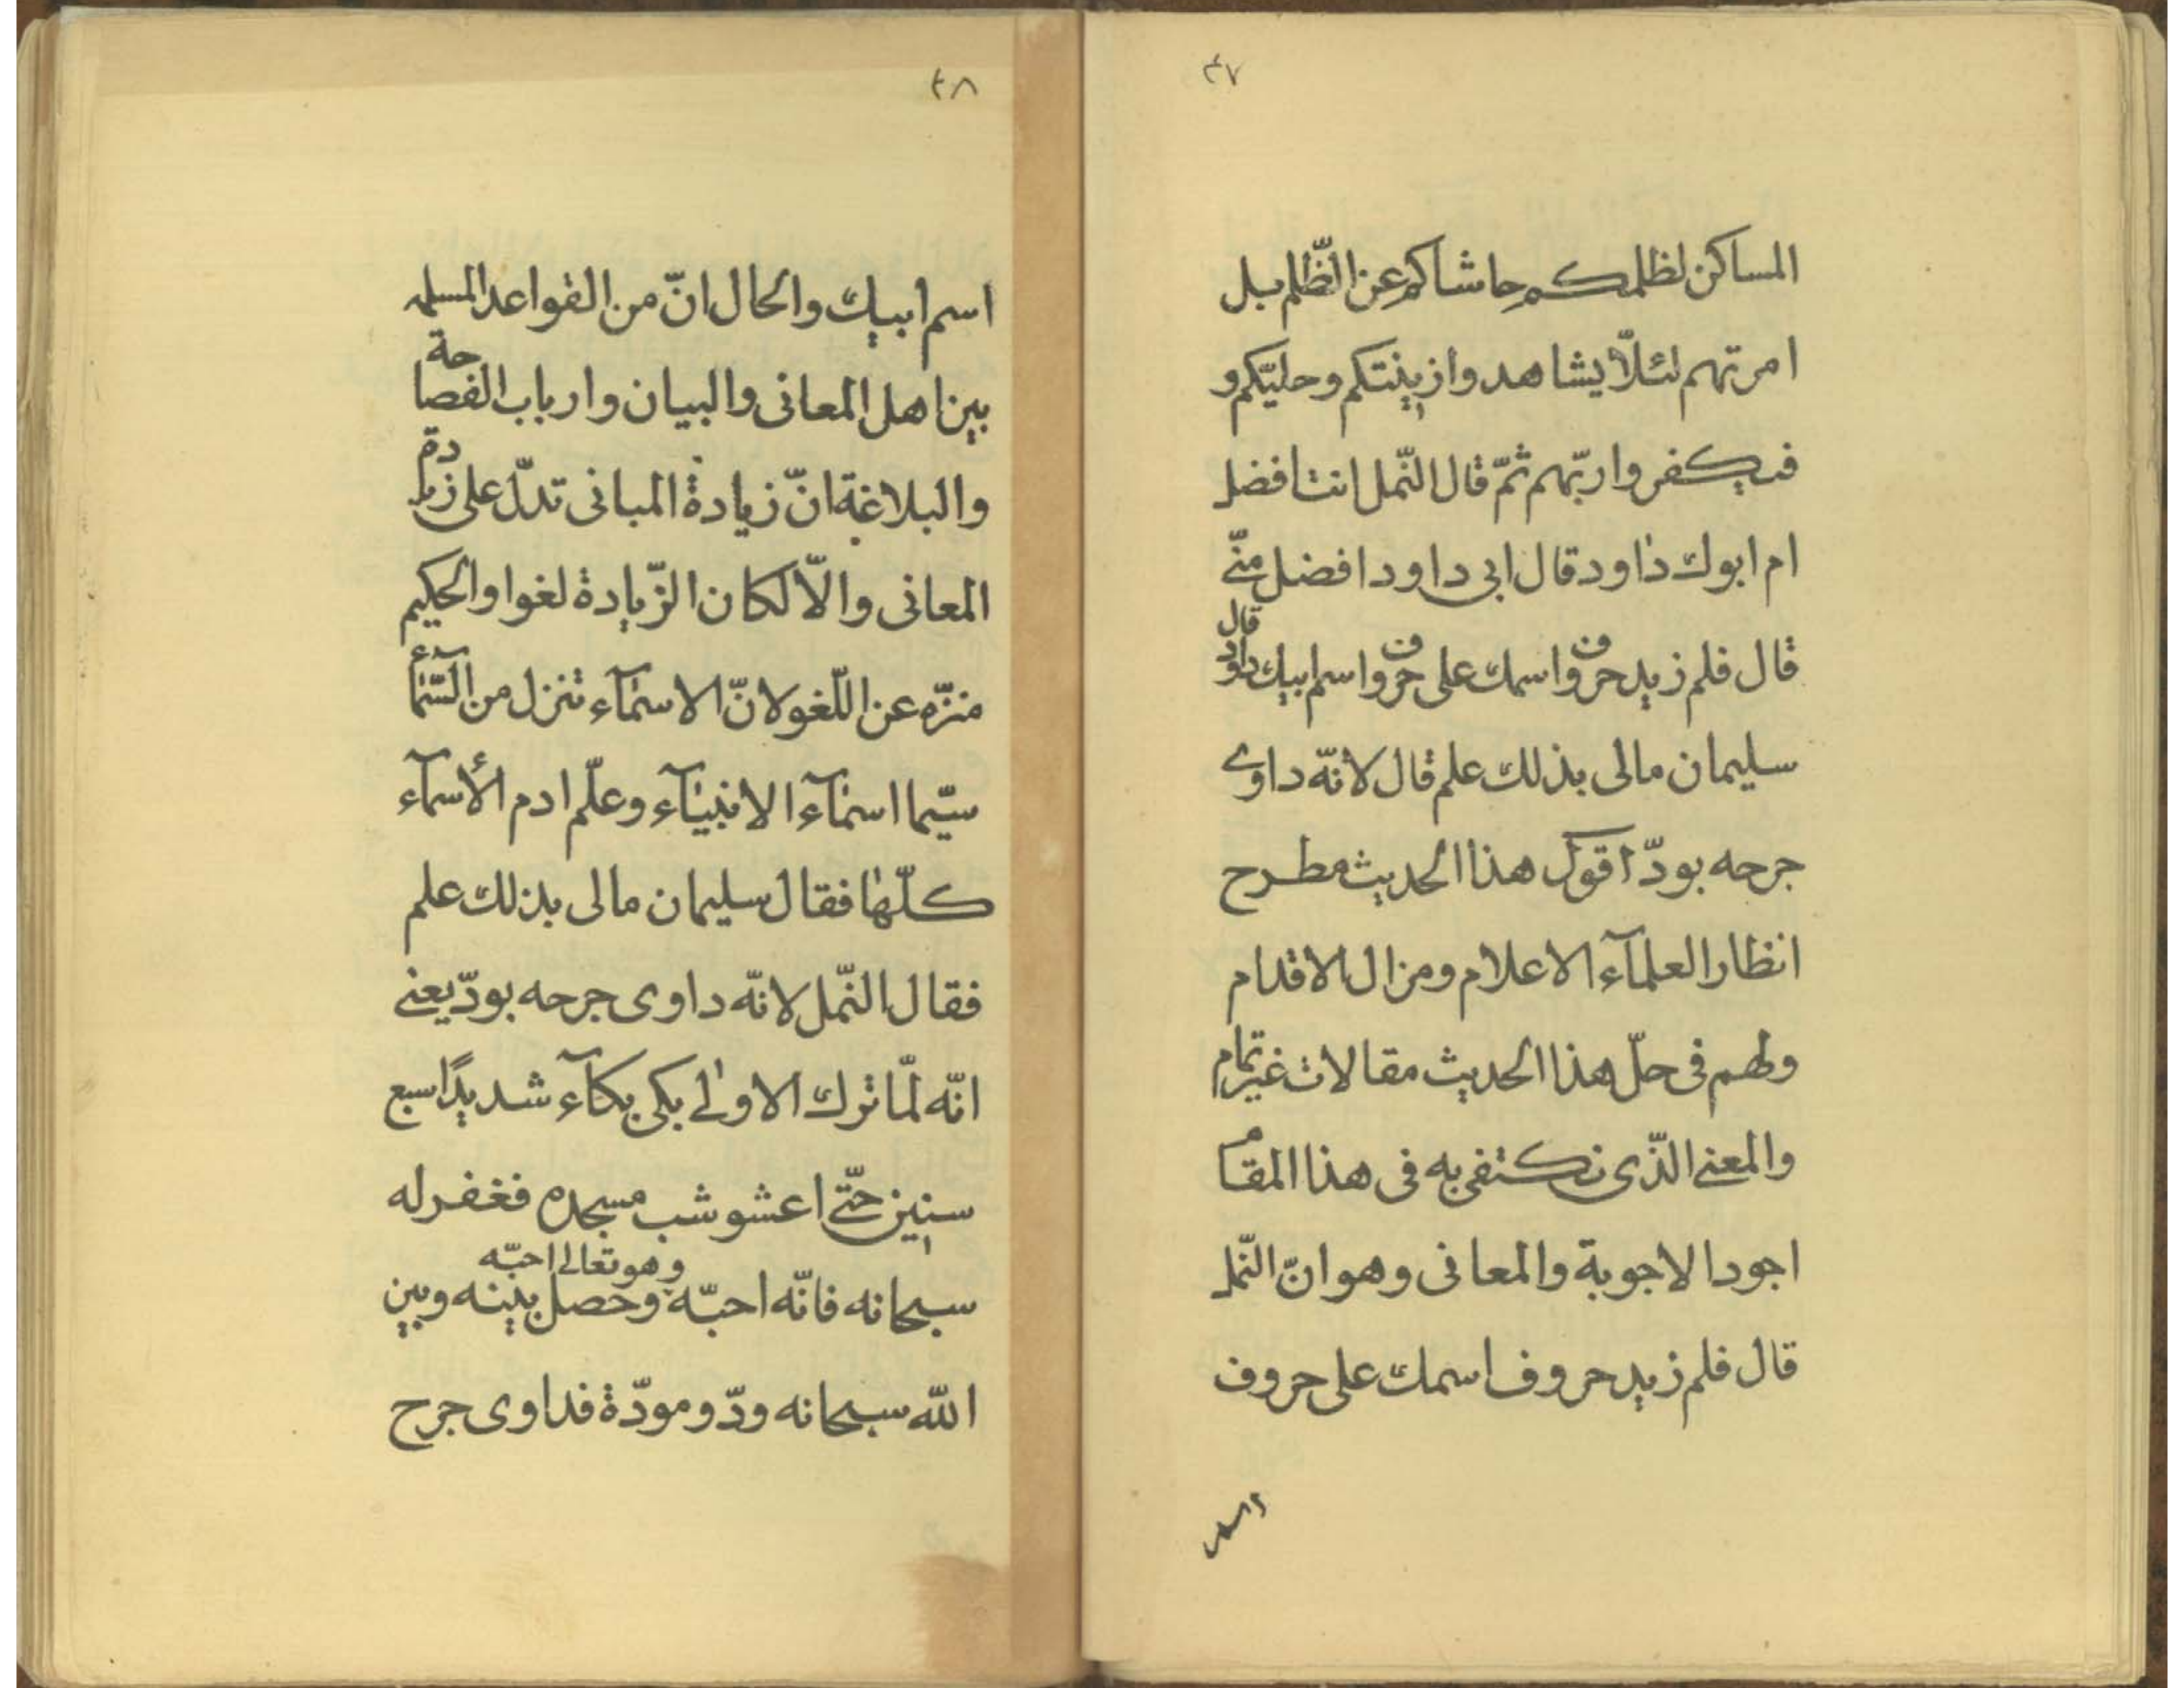 ٤٧
المساكن لظلمكم حاشاكم عن الظّلم بل
امرتهم لئلّا يشاهدوا زينتكم وحليّكم و
فيكفروا ربّهم ثمّ قال النّمل انت افضل
ام ابوك داود قال ابى داود افضل منّى
قال فلم زيد حروف اسمك على حروف اسم ابيك داود قال
سليمان مالى بذلك علم قال لانّه داوى
جرحه بودّ اقول هذا الحديث مطرح
انظار العلمآء الاعلام ومزال الاقدام
ولهم فى حلّ هذا الحديث مقالات غير تمام
والمعنى الّذى نكتفى به فى هذا المقام
اجود الاجوبة والمعانى وهو انّ النّمل
قال فلم زيد حروف اسمك على حروف
اسم
٤٨
اسم ابيك والحال انّ من القواعد المسلمه
بين اهل المعانى والبيان وارباب الفصاحة
والبلاغة انّ زيادة المبانى تدلّ على زيادة
المعانى والّا لكان الزّيادة لغوا والحكيم
منزّه عن اللّغو لانّ الاسمآء تنزل من السّمآء
سيّما اسمآء الانبيآء وعلّم ادم الأسمآء
كلّها فقال سليمان مالى بذلك علم
فقال النّمل لانّه داوى جرحه بودّ يعنى
انّه لمّا ترك الاولى بكى بكآء شديدًا سبع
سنين حتّى اعشوشب مسجده فغفر له
سبحانه فانّه احبّه وهو تعالى احبّه وحصل بينه وبين
اللّه سبحانه ودّ ومودّة فداوى جرح